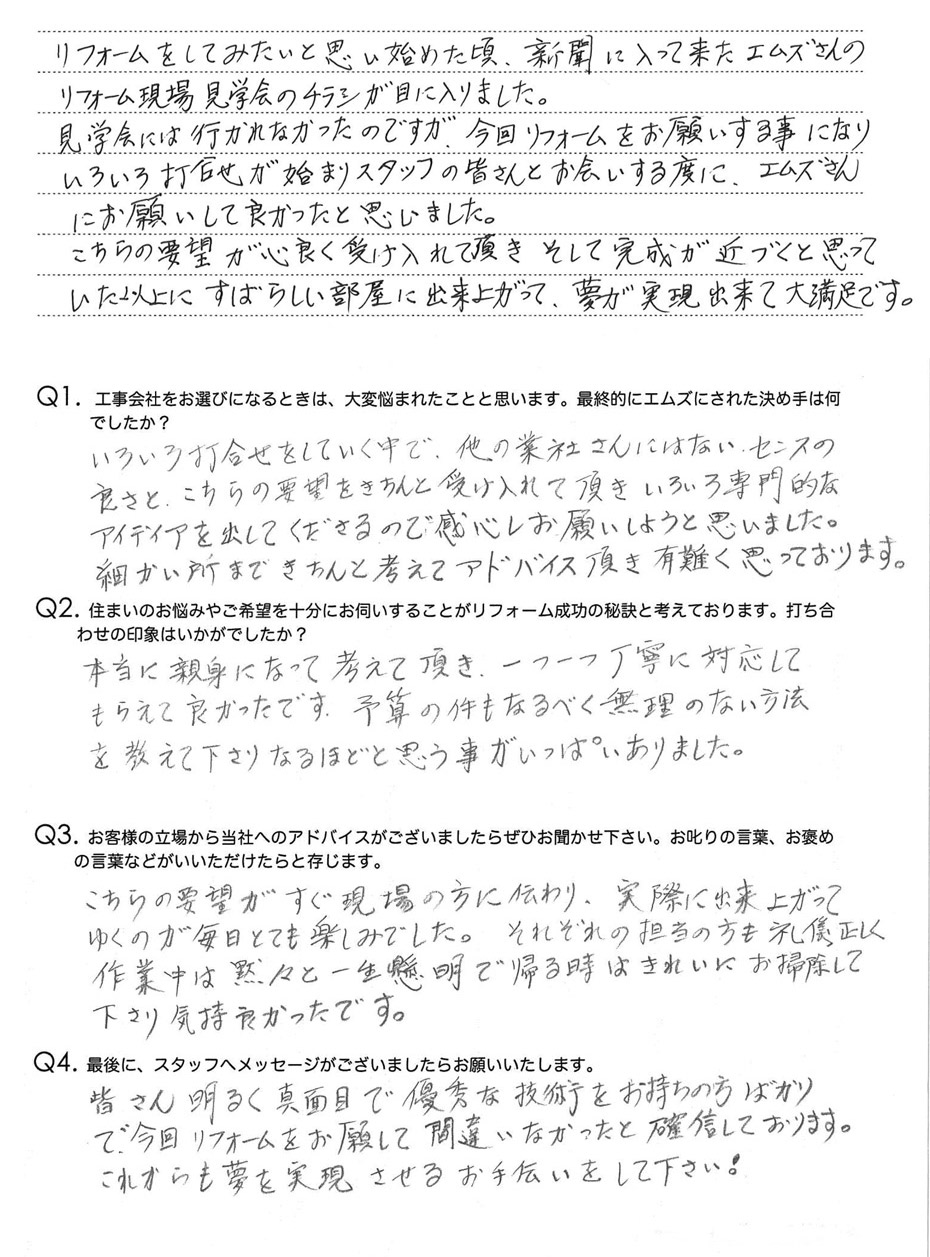 リフォームをしてみたいと思い始めた頃、新聞に入って来たエムズさんの
リフォーム現場見学会のチラシが目に入りました。
見学会には行かれなかったのですが、今回リフォームをお願いする事になり
いろいろ打合せが始まりスタッフの皆さんとお会いする度に、エムズさん
にお願いして良かったと思いました。
こちらの要望が心良く受け入れて頂き そして完成が近づくと思って
いた以上に すばらしい部屋に出来上がって、夢が実現出来て大満足です。
Q1. 工事会社をお選びになるときは、大変悩まれたことと思います。最終的にエムズにされた決め手は何
でしたか？
いろいろ打合せをしていく中で、他の業社さんにはない、センスの
良さと、こちらの要望をきちんと受け入れて頂き いろいろ専門的な
アイディアを出してくださるので感心しお願いしようと思いました。
細かい所まできちんと考えてアドバイス頂き有難く思っております。
Q2. 住まいのお悩みやご希望を十分にお伺いすることがリフォーム成功の秘訣と考えております。打ち合
わせの印象はいかがでしたか？
本当に親身になって考えて頂き、一つ一つ丁寧に対応して
もらえて良かったです。予算の件もなるべく無理のない方法
を教えて下さりなるほどと思う事がいっぱいありました。
Q3. お客様の立場から当社へのアドバイスがございましたらぜひお聞かせ下さい。お叱りの言葉、お褒め
の言葉などがいいただけたらと存じます。
こちらの要望がすぐ現場の方に伝わり、実際に出来上がって
ゆくのが毎日とても楽しみでした。 それぞれの担当の方も礼儀正しく
作業中は黙々と一生懸明で帰る時はきれいにお掃除して
下さり気持良かったです。
Q4. 最後に、スタッフへメッセージがございましたらお願いいたします。
皆さん明るく真面目で優秀な技術をお持ちの方ばかり
で、今回リフォームをお願して間違いなかったと確信しております。
これからも夢を実現させるお手伝いをして下さい！